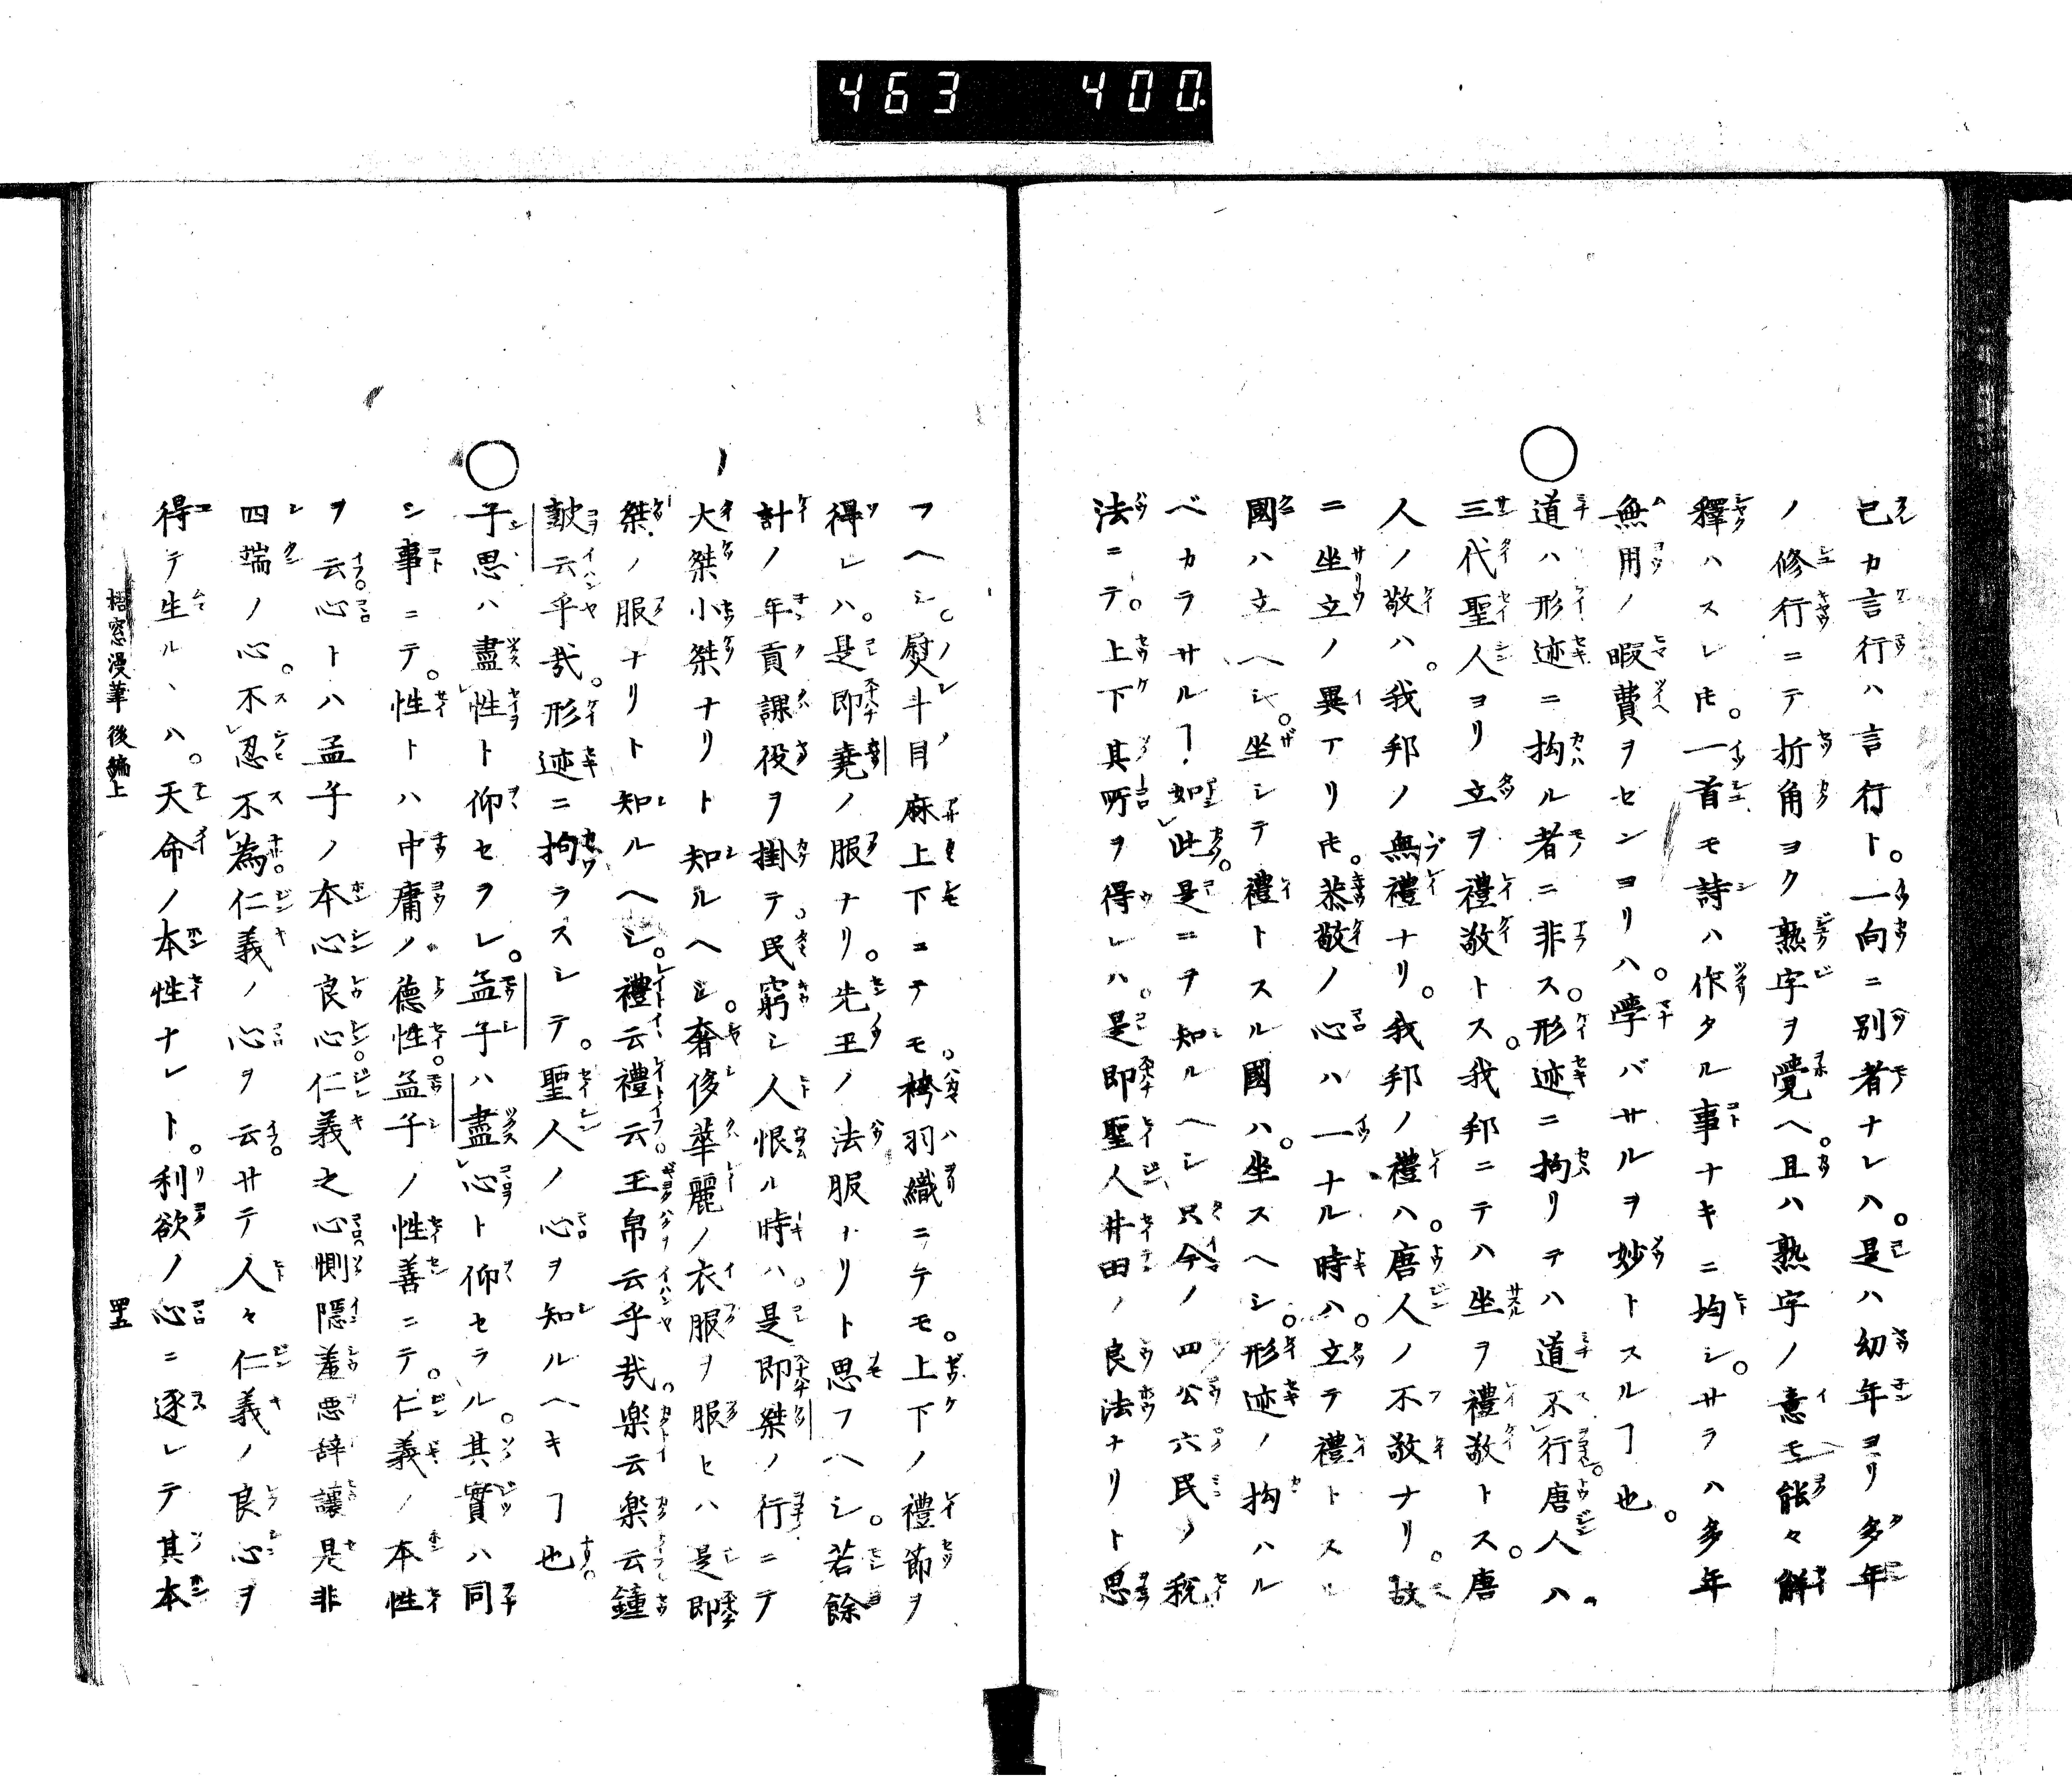 463 400
已カ言行ハ言行ト。一向ニ別者ナレハ。是ハ幼年ヨリ多年
ノ修行ニテ折角ヨク熟字ヲ覺ヘ。且ハ熟字ノ意モ能々解
釋ハスレ𪜈。一首モ詩ハ作タル事ナキニ均シ。サラハ多年
無用ノ暇費ヲセンヨリハ。學バサルヲ妙トスルヿ也。
○道ハ形迹ニ拘ル者ニ非ス。形迹ニ拘リテハ道不行唐人ハ。
三代聖人ヨリ立ヲ禮敬トス。我邦ニテハ坐ヲ禮敬トス。唐
人ノ敬ハ。我邦ノ無禮ナリ。我邦ノ禮ハ。唐人ノ不敬ナリ。故
ニ坐立ノ異アリ𪜈。恭敬ノ心ハ一ナル時ハ。立テ禮トスル
國ハ立ヘシ。坐シテ禮トスル國ハ。坐スヘシ。形迹ノ拘ハル
ベカラサルヿ如此。是ニヲ知ルヘシ只今ノ四公六民ノ税
法ニテ。上下其所ヲ得レハ。是即聖人井田ノ良法ナリト思
フヘシ。熨斗目麻上下ニテモ。袴羽織ニテモ。上下ノ禮節ヲ
得レハ。是即堯ノ服ナリ。先王ノ法服ナリト思フヘシ。若餘
計ノ年貢課役ヲ掛テ。民窮シ人恨ル時ハ。是即桀ノ行ニテ
大桀小桀ナリト知ルヘシ。奢侈華麗ノ衣服ヲ服セハ是即
桀ノ服ナリト知ルヘシ。禮云禮云玉帛云乎哉。楽云楽云鐘
皷云乎哉。形迹ニ拘ラスシテ。聖人ノ心ヲ知ルヘキヿ也。
○子思ハ盡性ト仰セヲレ。孟子ハ盡心ト仰セラル。其實ハ同
シ事ニテ。性トハ中庸ノ德性。孟子ノ性善ニテ。仁義ノ本性
ヲ云。心トハ孟子ノ本心良心仁義之心惻隱羞惡辞讓是非
四端ノ心。不忍不為仁義ノ心ヲ云。サテ人々仁義ノ良心ヲ
得テ生ルヽハ。天命ノ本性ナレト。利欲ノ心ニ逐レテ其本
梧窓漫筆後編上
四五